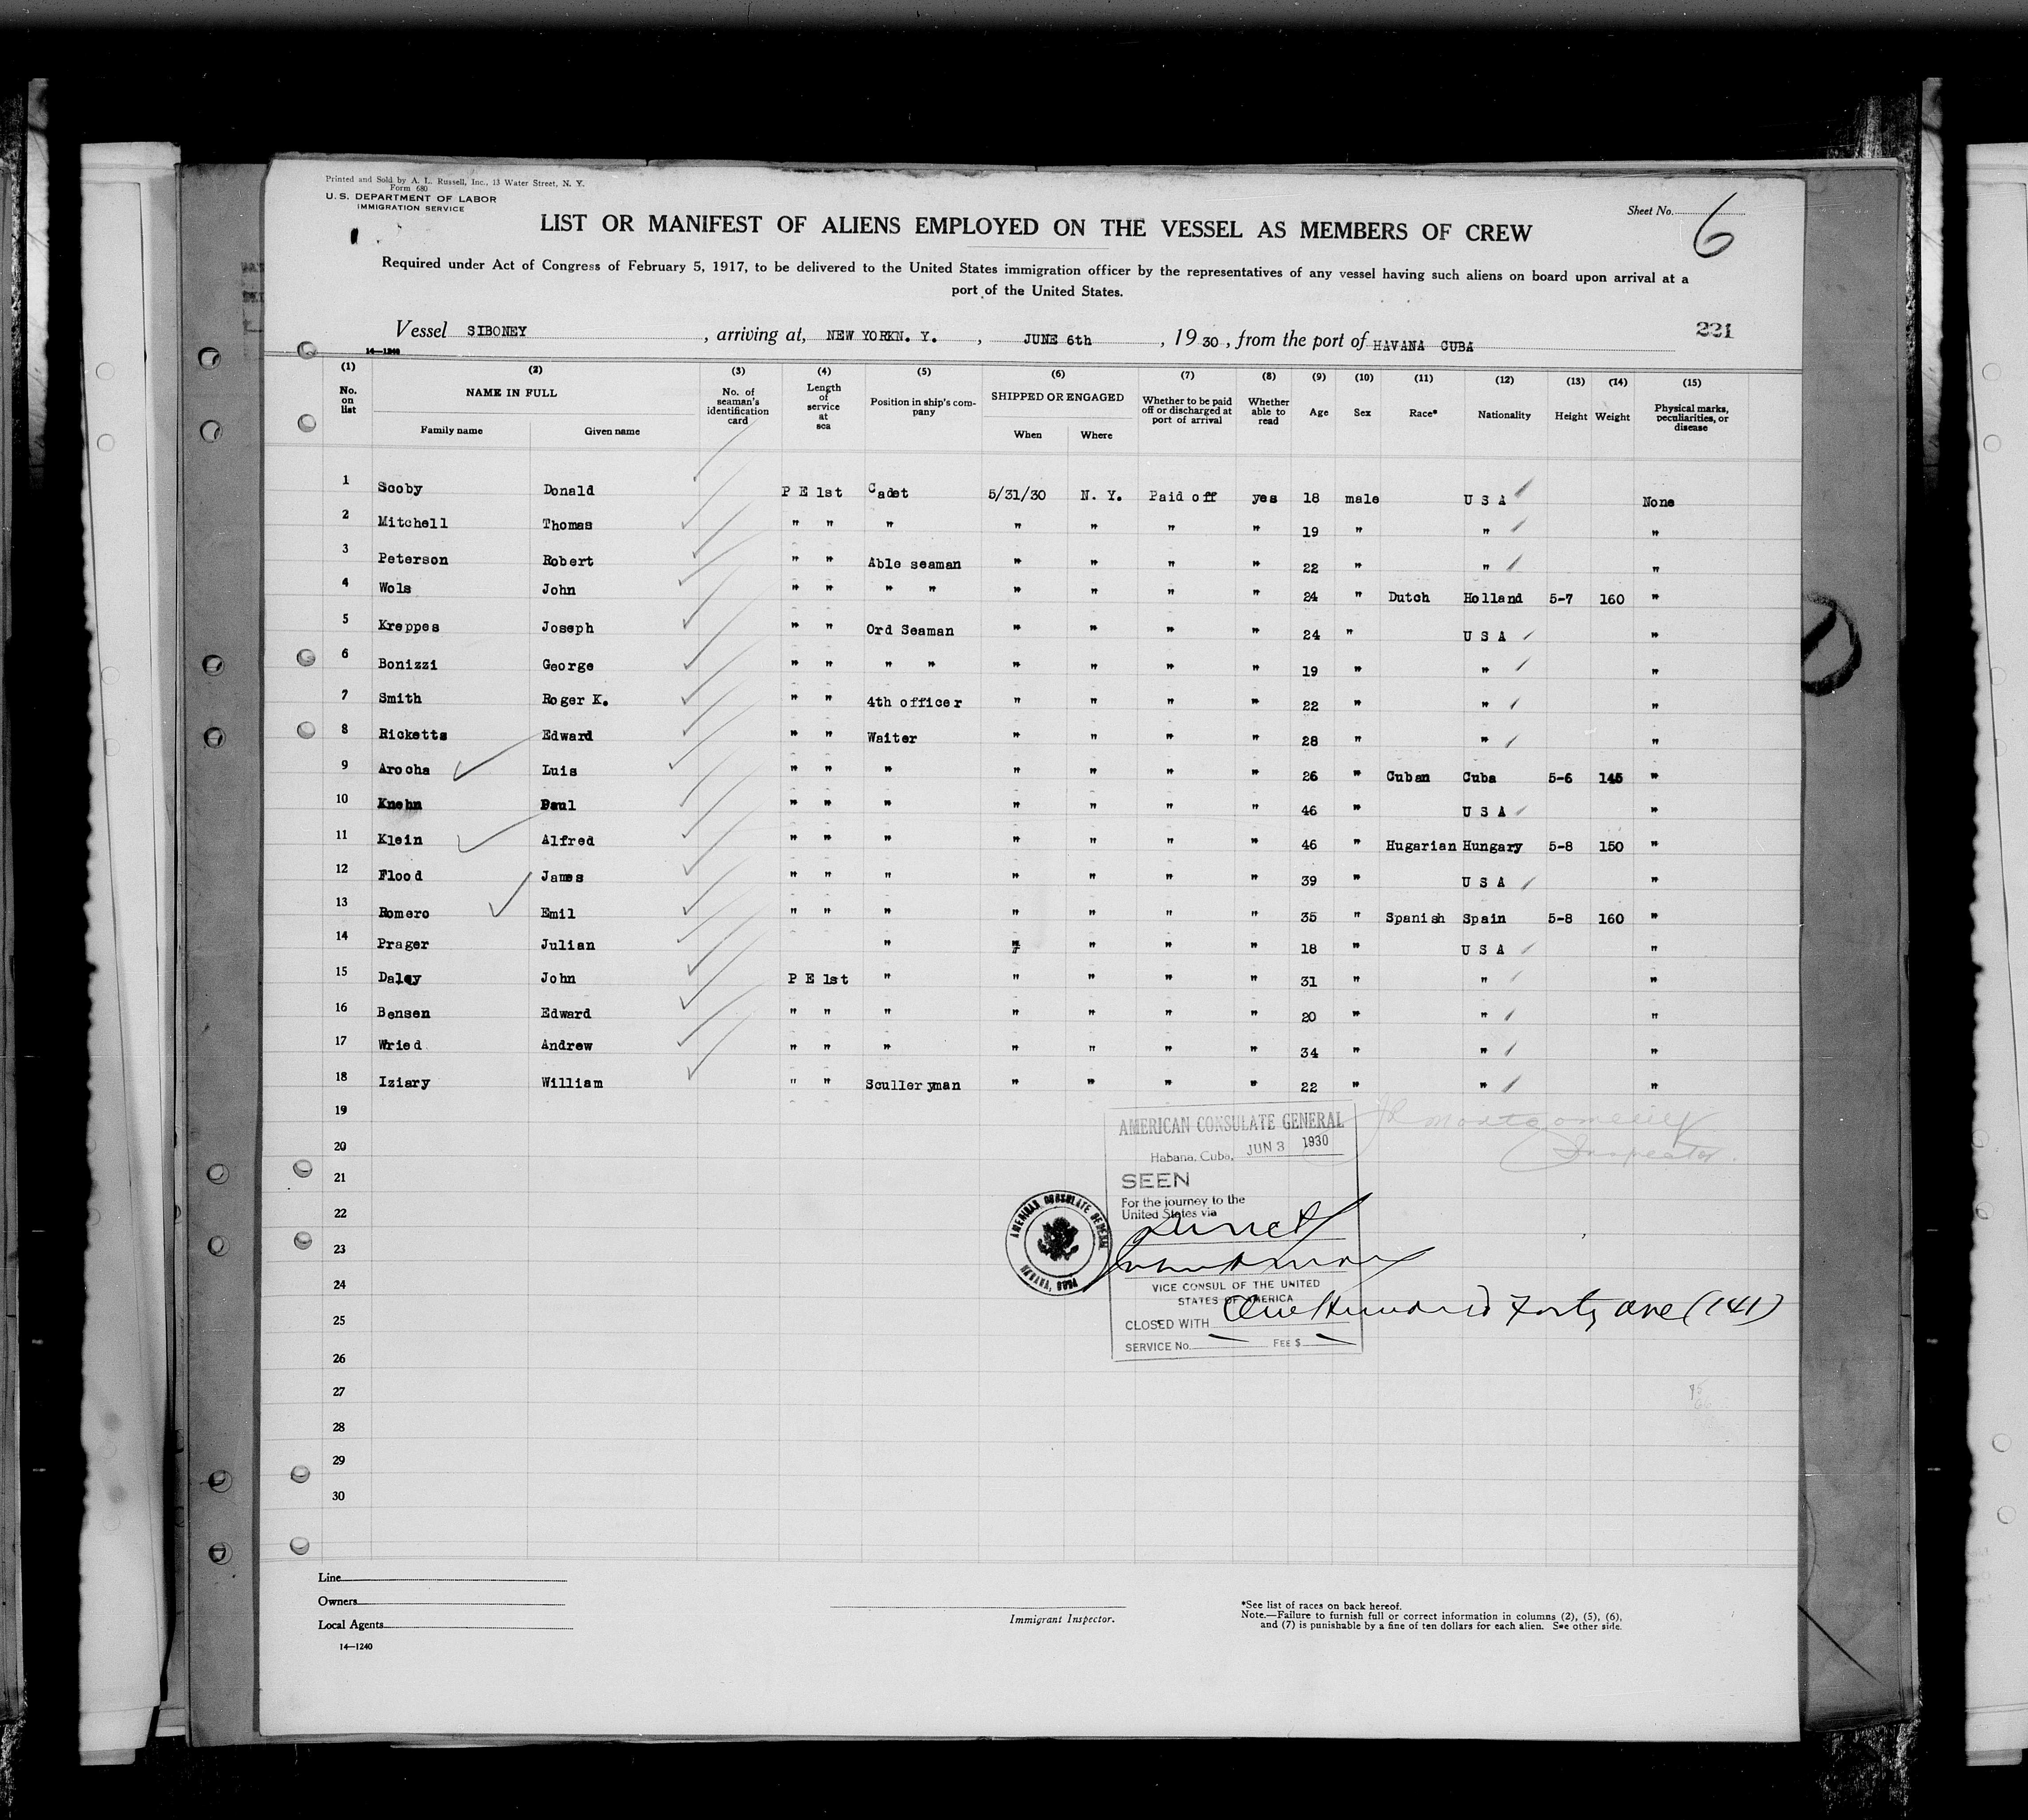 Printed and Sold by A. L. Russell, Inc., 13 Water Street, N. Y.
Form 680
U. S. DEPARTMENT OF LABOR
IMMIGRATION SERVICE
Sheet No. 6
LIST OR MANIFEST OF ALIENS EMPLOYED ON THE VESSEL AS MEMBERS OF CREW
Required under Act of Congress of February 5, 1917, to be delivered to the United States immigration officer by the representatives of any vessel having such aliens on board upon arrival at a
port of the United States.
Vessel SIBONEY, arriving at, NEW YORKN. Y., JUNE 6th, 1930, from the port of HAVANA CUBA
221
14—1240
(1) (2) (3) (4) (5) (6) (7) (8) (9) (10) (11) (12) (13) (14) (15)
No. on list NAME IN FULL Family name Given name No. of seaman's identification card Length of service at sea Position in ship's company SHIPPED OR ENGAGED When Where Whether to be paid off or discharged at port of arrival Whether able to read Age Sex Race* Nationality Height Weight Physical marks, peculiarities, or disease
1 Scoby Donald P E 1st Cadet 5/31/30 N. Y. Paid off yes 18 male U S A None
2 Mitchell Thomas " " " " " " " 19 " " "
3 Peterson Robert " " Able seaman " " " " 22 " " "
4 Wols John " " " " " " " " 24 " Dutch Holland 5-7 160 "
5 Kreppes Joseph " " Ord Seaman " " " " 24 " U S A "
6 Bonizzi George " " " " " " " " 19 " " "
7 Smith Roger K. " " 4th officer " " " " 22 " " "
8 Ricketts Edward " " Waiter " " " " 28 " " "
9 Arocha Luis " " " " " " " 26 " Cuban Cuba 5-6 145 "
10 Knehn Paul " " " " " " " 46 " U S A "
11 Klein Alfred " " " " " " " 46 " Hugarian Hungary 5-8 150 "
12 Flood James " " " " " " " 39 " U S A "
13 Romero Emil " " " " " " " 35 " Spanish Spain 5-8 160 "
14 Prager Julian " " " " " 18 " U S A "
15 Daley John P E 1st " " " " " 31 " " "
16 Bensen Edward " " " " " " " 20 " " "
17 Wried Andrew " " " " " " " 34 " " "
18 Iziary William " " Sculleryman " " " " 22 " " "
19
20
21
22
23
24
25
26
27
28
29
30
Montgomery
Inspector.
AMERICAN CONSULATE GENERAL
Habana, Cuba, JUN 3 1930
SEEN
For the journey to the
United States via
Direct
VICE CONSUL OF THE UNITED
STATES OF AMERICA
CLOSED WITH One Hundred Forty one (141)
SERVICE No. FEE $
AMERICAN CONSULATE GENERAL
HABANA, CUBA
Line
Owners
Local Agents
14—1240
Immigrant Inspector.
*See list of races on back hereof.
Note.—Failure to furnish full or correct information in columns (2), (5), (6),
and (7) is punishable by a fine of ten dollars for each alien. See other side.